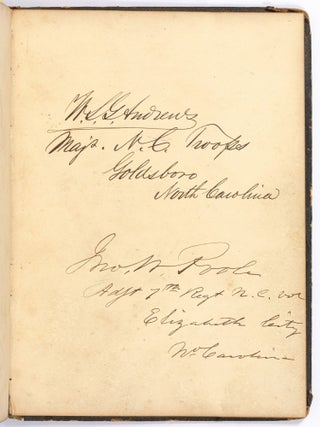 W.S.G. Andrews
Majr. N.C. Troops
Goldsboro
North Carolina
Jno. W. Poole
Adjt 7th Regt N.C. vol
Elizabeth City
No Carolina